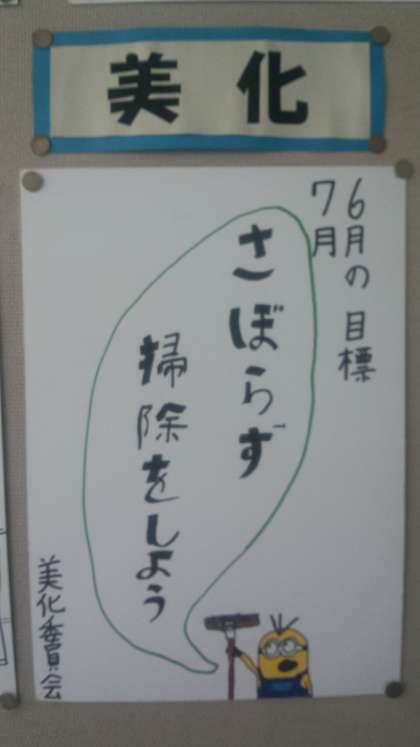 美化
6月の目標
7月
さぼらず
掃除をしよう
美化委員会